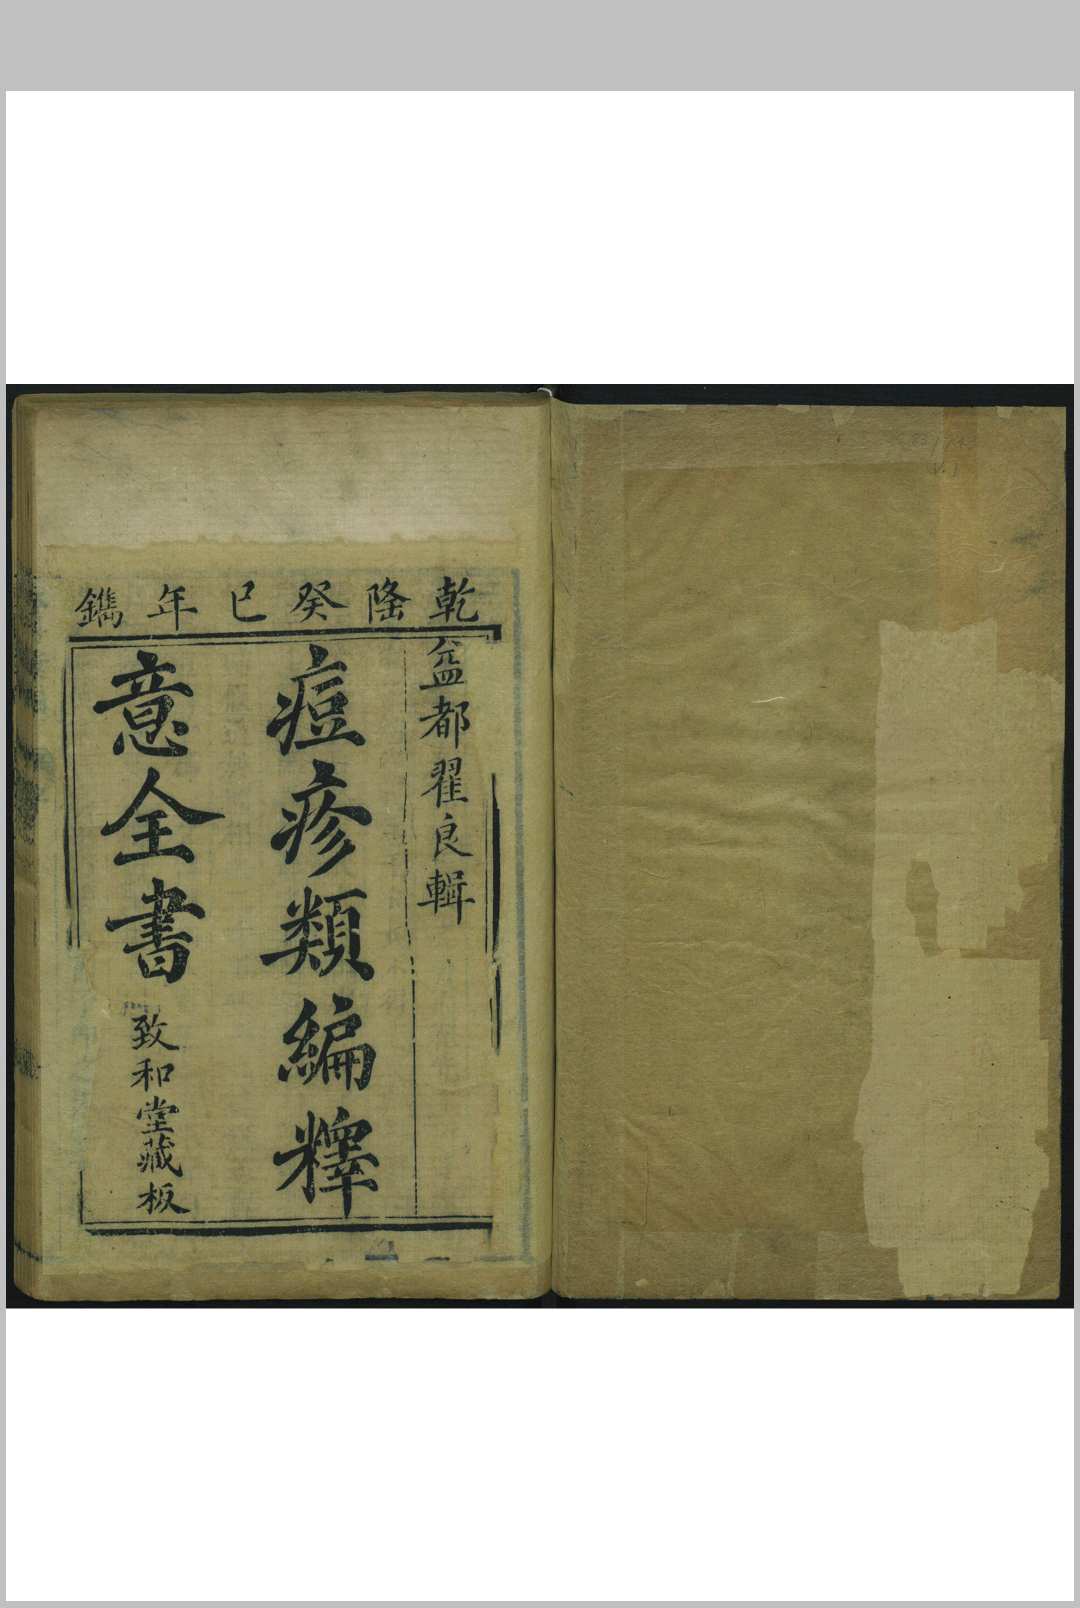 乾隆癸巳年鐫
益都翟良輯
痘疹類編釋
意全書
致和堂藏板